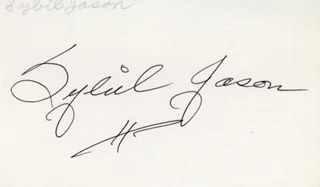 Sybil Jason
Sybil Jason